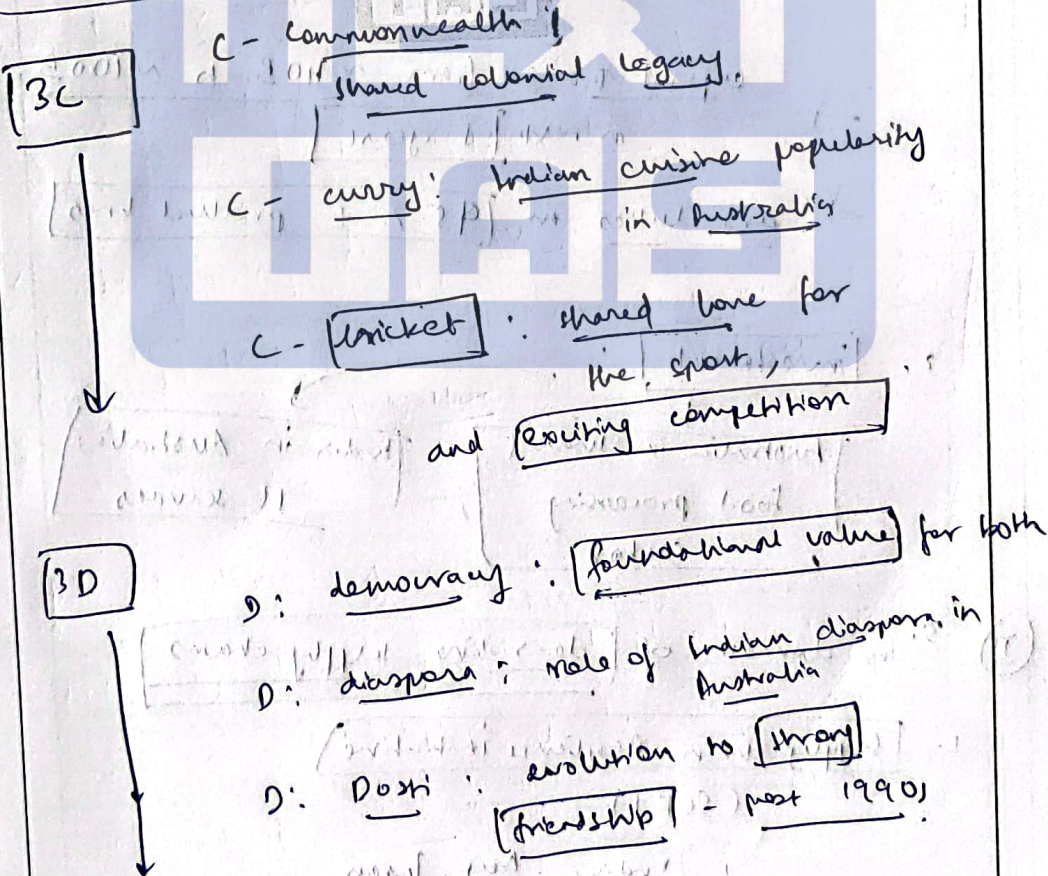 NEXT
IAS
C - Commonwealth ;
3C
shared colonial legacy.
C - curry : Indian cuisine popularity
in Australia
C - cricket : shared love for
the sport,
and exciting competition
3D
D : democracy : foundational value for both
D : diaspora : role of Indian diaspora in
Australia
D : Dosti : evolution to strong
friendship - post 1990s